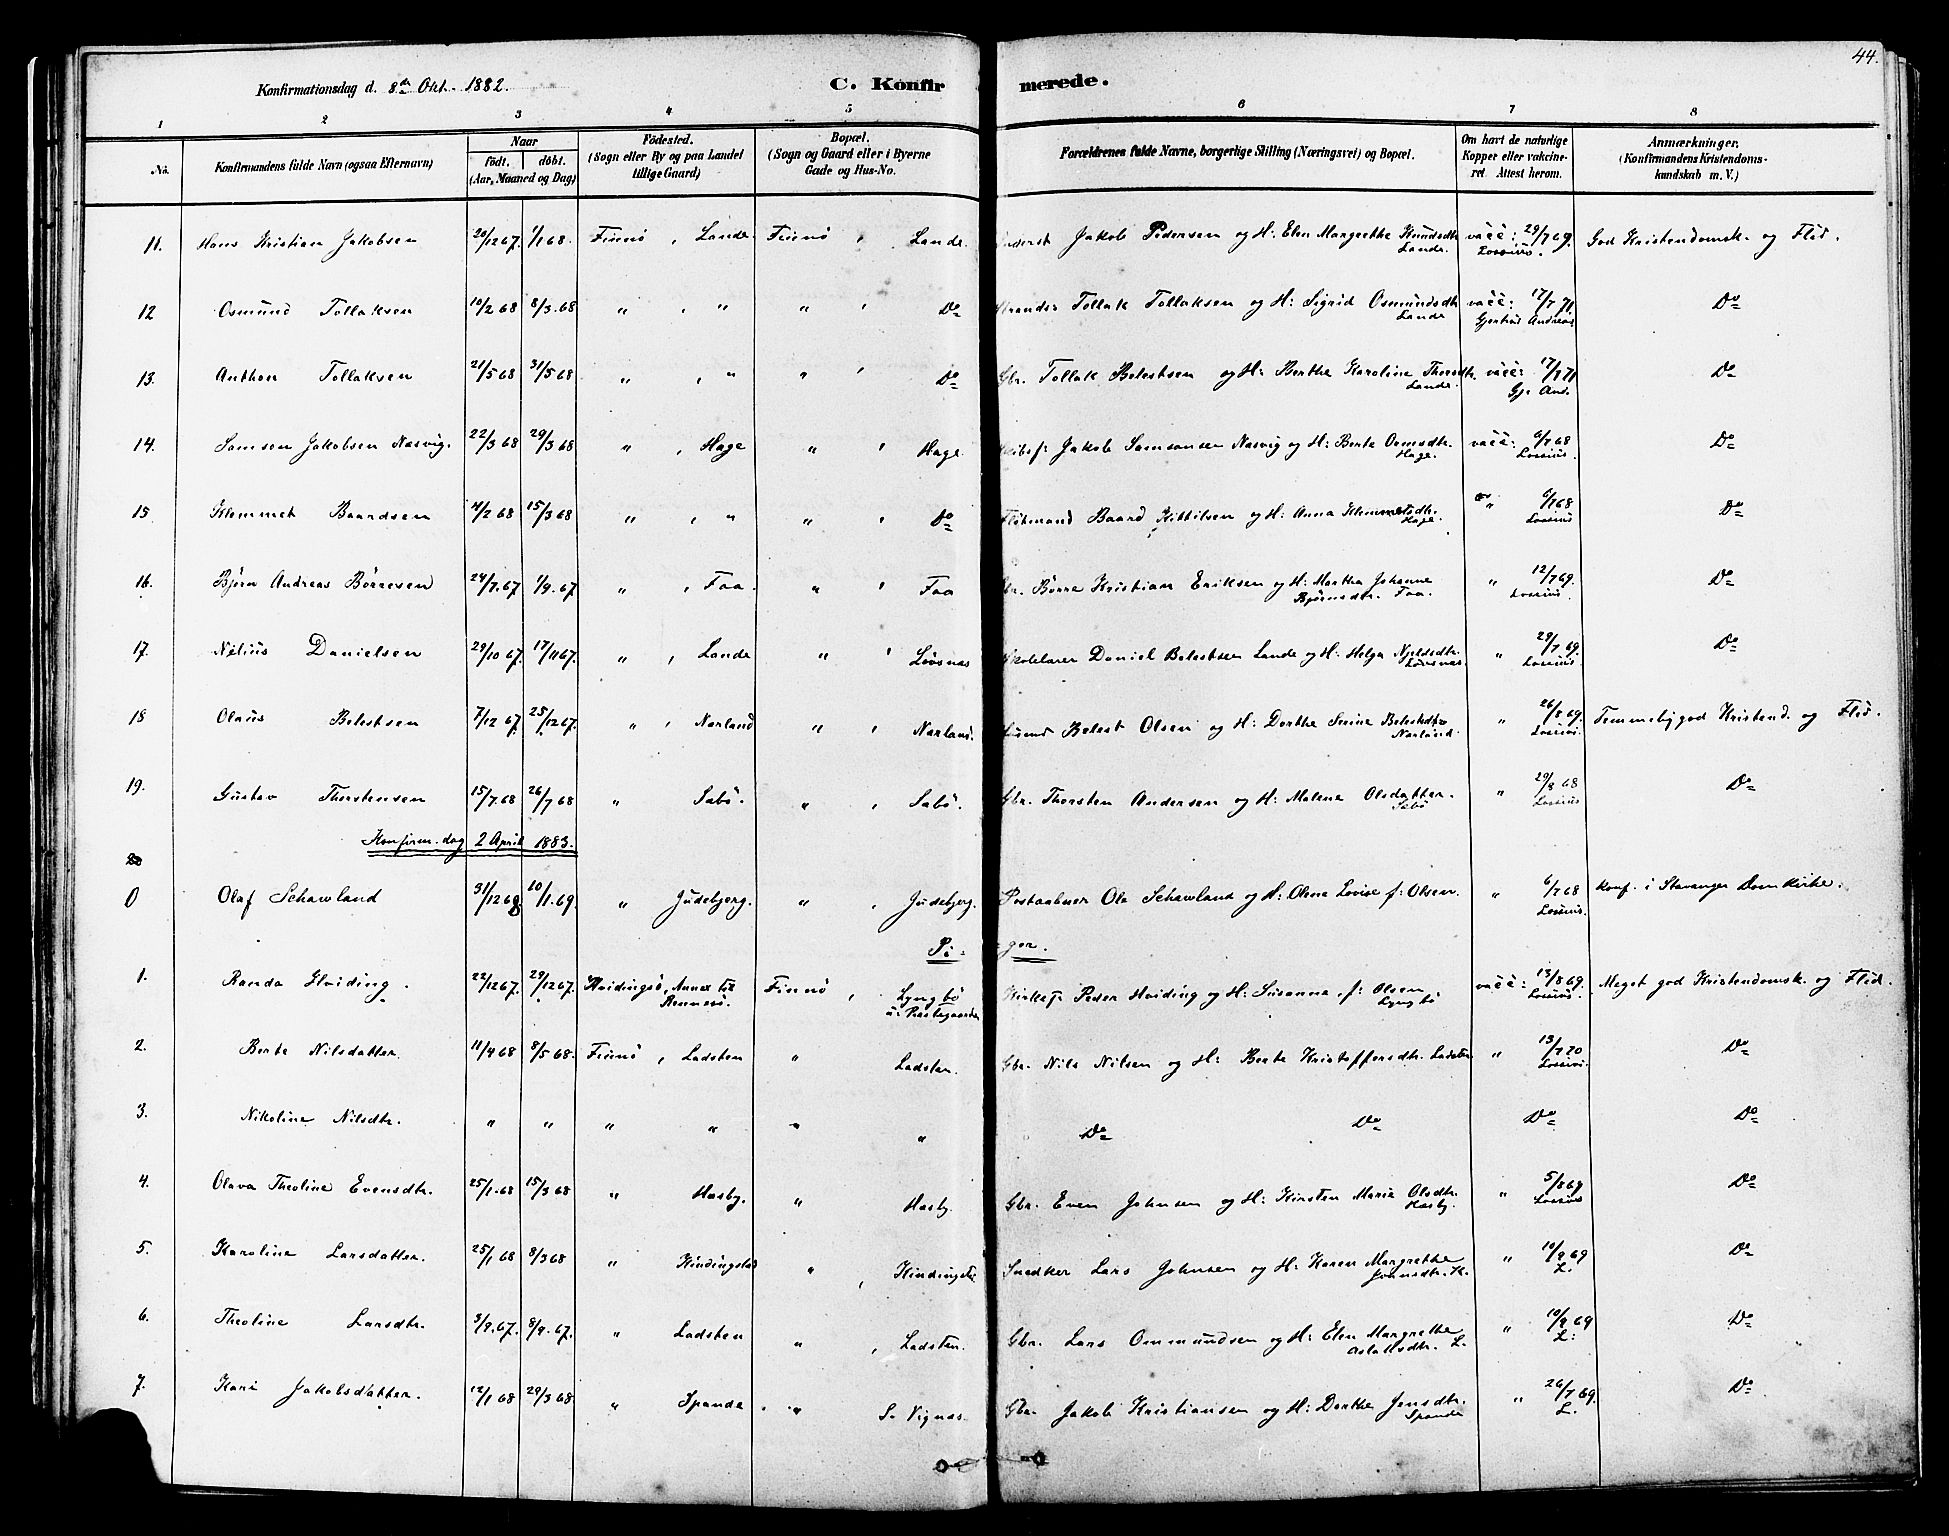 44.
Konfirmationsdag d. 8de Okt. 1882.
C. Konfirmerede.
1 2 3 4 5 6 7 8
No. Konfirmandens fulde Navn (ogsaa Efternavn) Naar født. døbt. (Aar, Maaned og Dag) Fødested. (Sogn eller By og paa Landet tillige Gaard) Bopæl. (Sogn og Gaard eller i Byerne Gade og Hus-No. Forældrenes fulde Navne, borgerlige Stilling (Næringsvei) og Bopæl. Om havt de naturlige Kopper eller vakcineret. Attest herom. Anmærkninger. (Konfirmandens Kristendomskundskab m. V.)
11. Hans Kristian Jakobsen 20/12 67. 1/1 68. Finnø, Lande. Finnø, Lande. Jakob Pedersen og H: Elen Margrethe Knudsdtr Lande. vacc: 29/7 69. Lossius. God Kristendomsk. og Flid.
12 Osmund Tollaksen 10/2 68 8/3. 68 " , " " , Do Tollak Tollaksen og H: Sigrid Osmundsdtr Lande vacc: 17/7 71. Gjertrus Andreas Do
13. Anthon Tollaksen 21/5 68 31/5 68 " , " " , Do Gbr. Tollak Belestsen og H: Berthe Karoline Thorsdtr. Lande. vacc: 17/7 71 Gj. And. Do
14. Samson Jakobsen Nasvig. 22/3 68 29/3 68 " , Hage " , Hage. Jakob Samsonsen Nasvig og H: Berte Ormsdtr. Hage. vacc: 6/7 68 Lossius. Do
15 Klemmet Baardsen 4/2 68 15/3 68 " , " " , Do Baard Kittilsen og H: Anna Klemmetsdtr. Hage. " 6/7 68 Lossius Do
16. Bjørn Andreas Børresen 24/7. 67 1/9. 67 " , Faa. " , Faa Gbr. Børre Kristian Eriksen og H: Martha Johanne Bjørnsdtr. Faa. " 12/7 69. Lossius. Do
17. Nilius Danielsen 29/10 67. 17/11 67. " , Lande " , Løvsnas Skolelærer Daniel Belestsen Lande og H: Helga Njeldsdtr. Løvsnas. " 29/7 69. Lossius. Do
18 Olaus Belestsen 7/12 67. 25/12 67. " , Narland " , Narland. Belest Olsen og H: Dorthe Serine Belestsdtr Narland. " 26/8 69. Lossius. Temmelig god Kristend. og Flid.
19. Gustav Thorstensen 15/7. 68 26/7 68 " Sabø. " , Sabø. Gbr. Thorsten Andersen og H: Malene Olsdatter. Sabø " 29/8 68 Lossius Do
Konfirm. dag 2 April 1883.
0 Olaf Schawland 31/12 68 10/1. 69. " Judebjerg. " , Judebjerg. Postaabner Ola Schawland og H: Olene Lovise f: Olsen. " 6/7 68 Lossius. Konf. i Stavanger Domkirke.
Pi=ger.
1. Randa Hviding. 22/12 67. 29/12 67. Hvidingsø, Annex til Rennesø. Finnø , Lyngbø u. Prestegaarden Kirkesr Peder Hviding og H: Susanne. f: Olsen Lyngbø vacc: 13/8 69. Lossius. Meget god Kristendomsk. og Flid.
2. Berte Nilsdatter. 11/4 68 8/5 68. Finnø , Ladsten " Ladsten. Gbr. Nils Nilsen og H: Berte Kristoffersdtr. Ladsten " 13/7 70 Lossius. Do
3. Nikoline Nilsdtr. " " " " " " Do Do Do Do
4. Olava Theoline Evensdtr. 25/1. 68 15/3 68 " Hasby. " Hasby. Gbr. Even Johnsen og H: Kirsten Marie Olsdtr. Hasby. " 5/8 69 Lossius Do
5. Karoline Larsdatter. 25/1 68 8/3 68 " Kindingstad " , Kindingsta Snedker Lars Johnsen og H: Karen Margrethe Johnsdtr. K. " 10/9 69 L. Do
6. Theoline Larsdtr. 3/9. 67. 8/9. 67. " Ladsten " , Ladsten. Gbr. Lars Ommundsen og H: Elen Margrethe Aslaksdtr. L. " 10/9 69 L: Do
7. Kari Jakobsdatter. 12/1 68 29/3 68 " Spande. " S. Vignas. Gbr. Jakob Kristiansen og H: Dorthe Jonsdtr. Spande " 26/7 69. L. Do